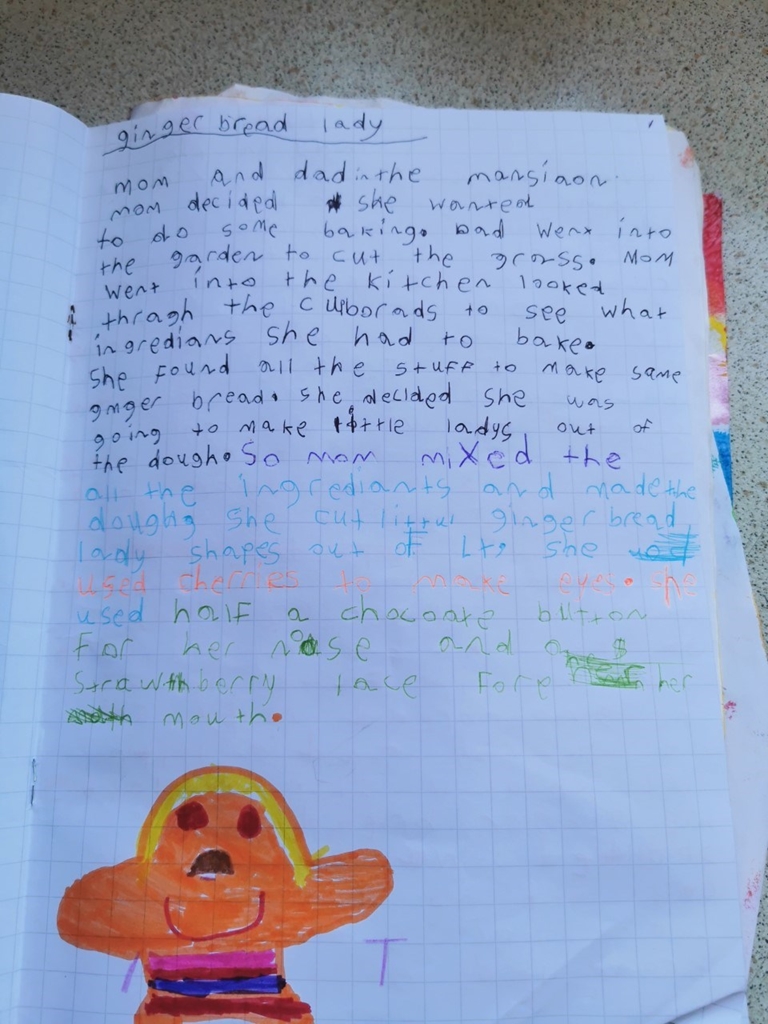 ginger bread lady
mom and dad in the mansiaon.
mom decided she wanted
to do some baking. Dad went into
the garden to cut the grass. Mom
went into the kitchen looked
thragh the cuborads to see what
ingredians she had to bake.
She found all the stuff to make same
ginger bread. she decided she was
going to make little ladys out of
the dough. So mom mixed the
all the ingrediants and made the
doughg she cut littul ginger bread
lady shapes out of it, she
used cherries to make eyes. she
used half a chocoate button
For her nose and a
strawthberry lace fore her
mouth.
T